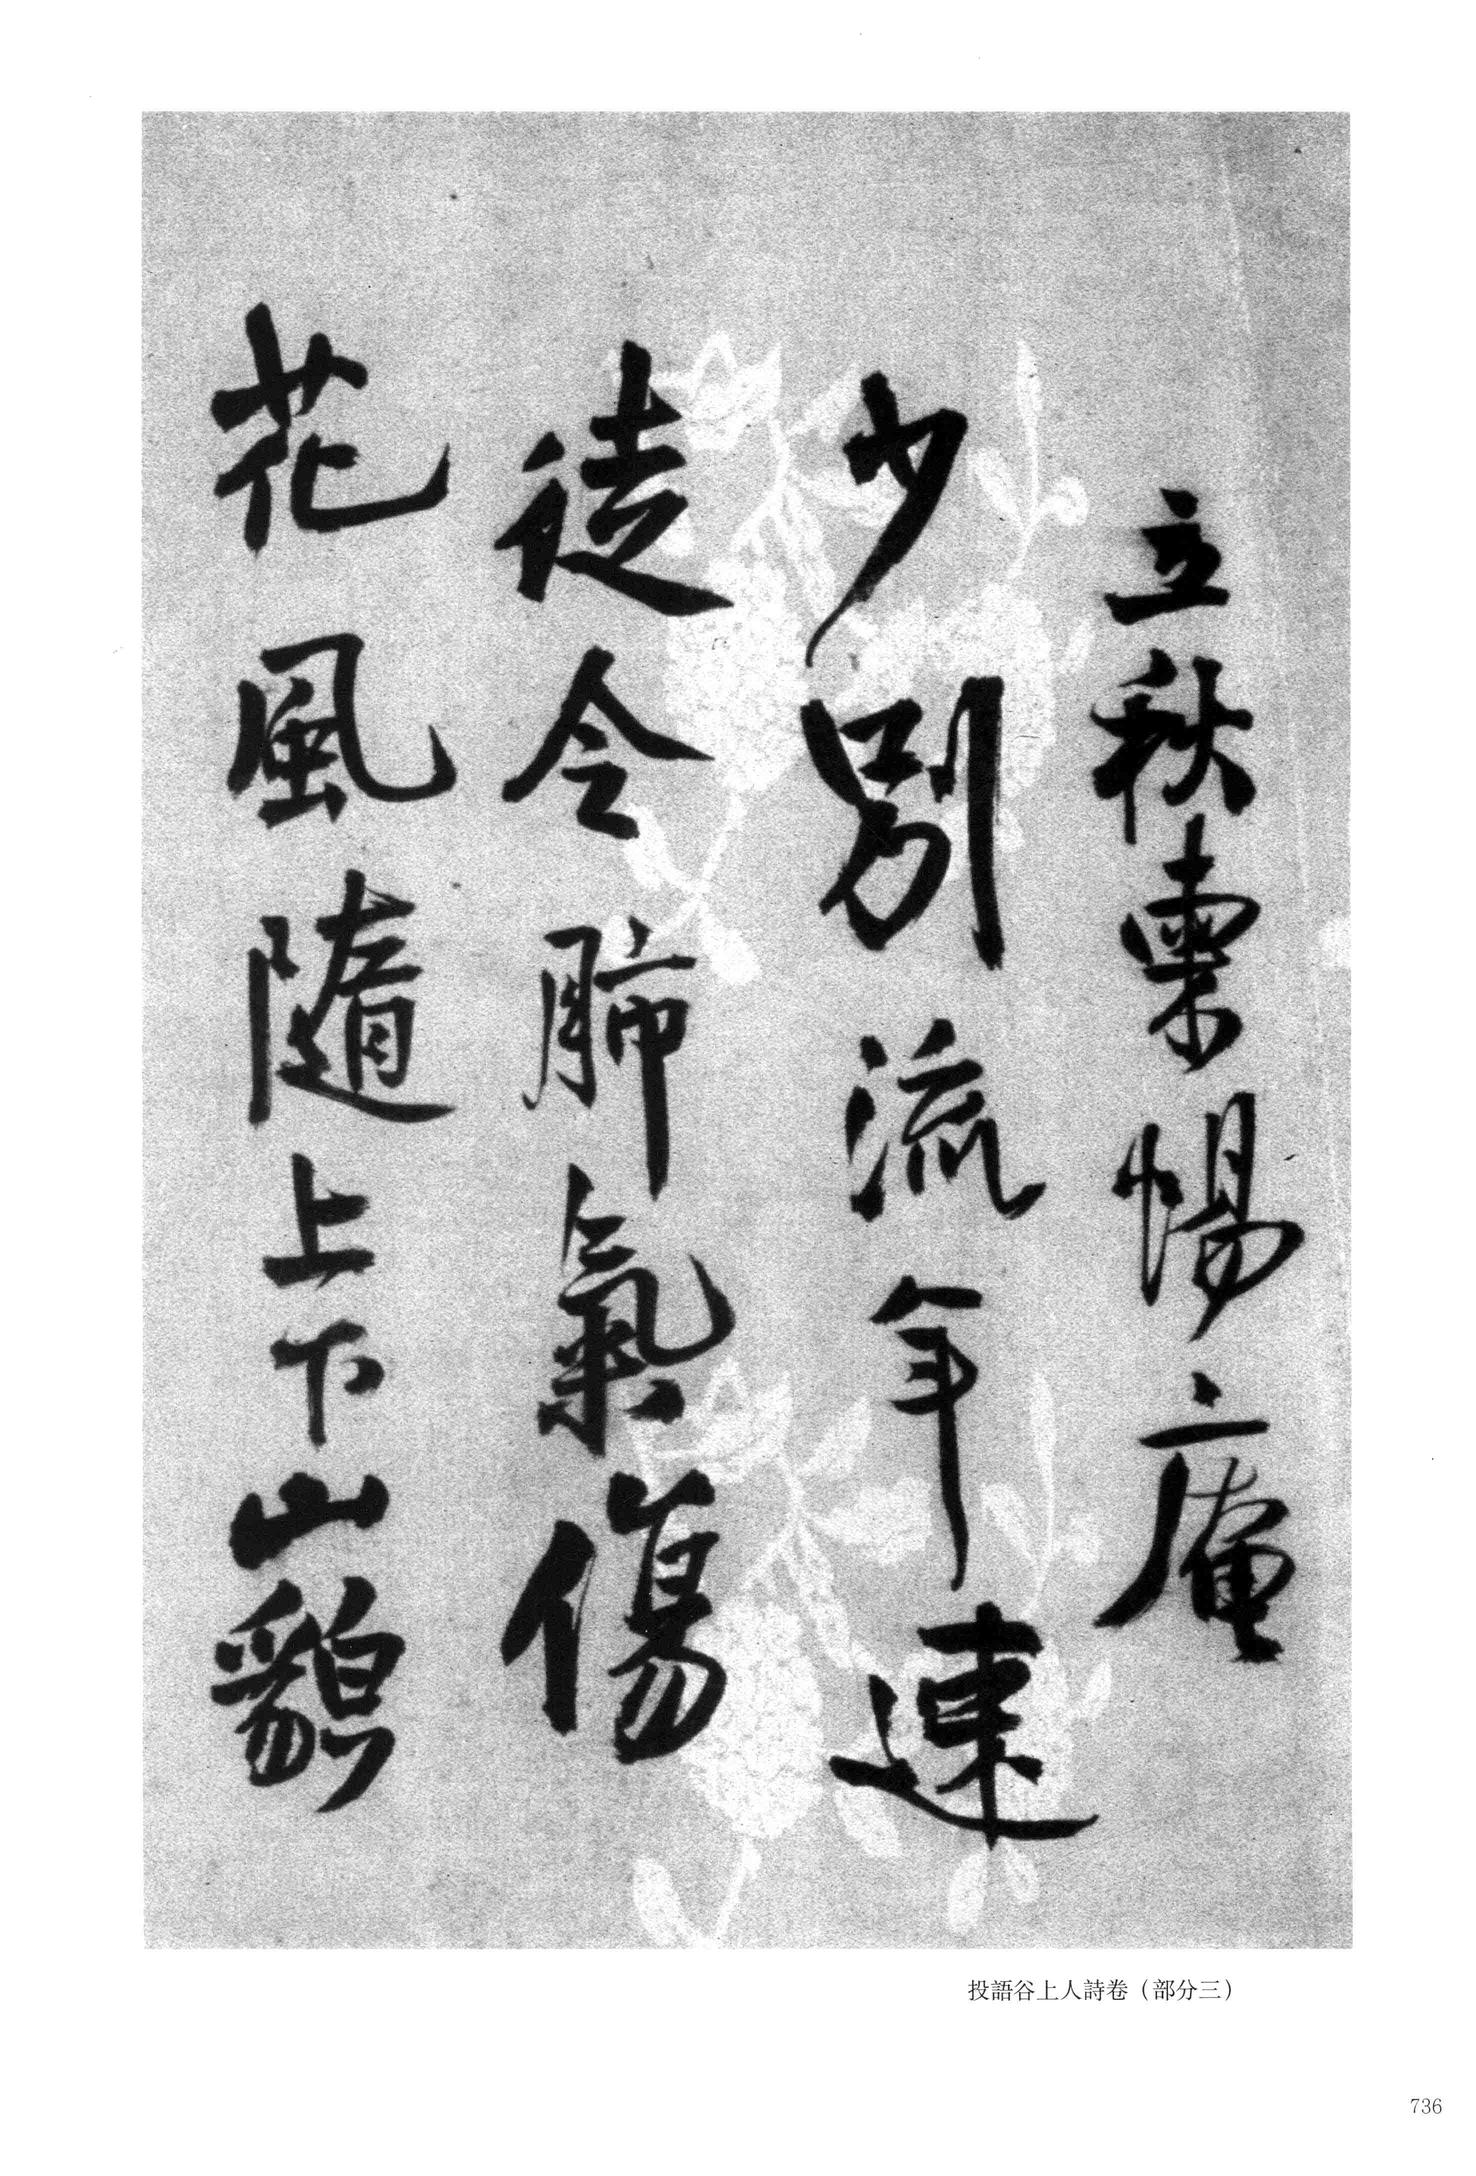 立秋柬惕庵
少別流年速
徒令肺氣傷
花風隨上下山貌
投語谷上人詩卷（部分三）
736